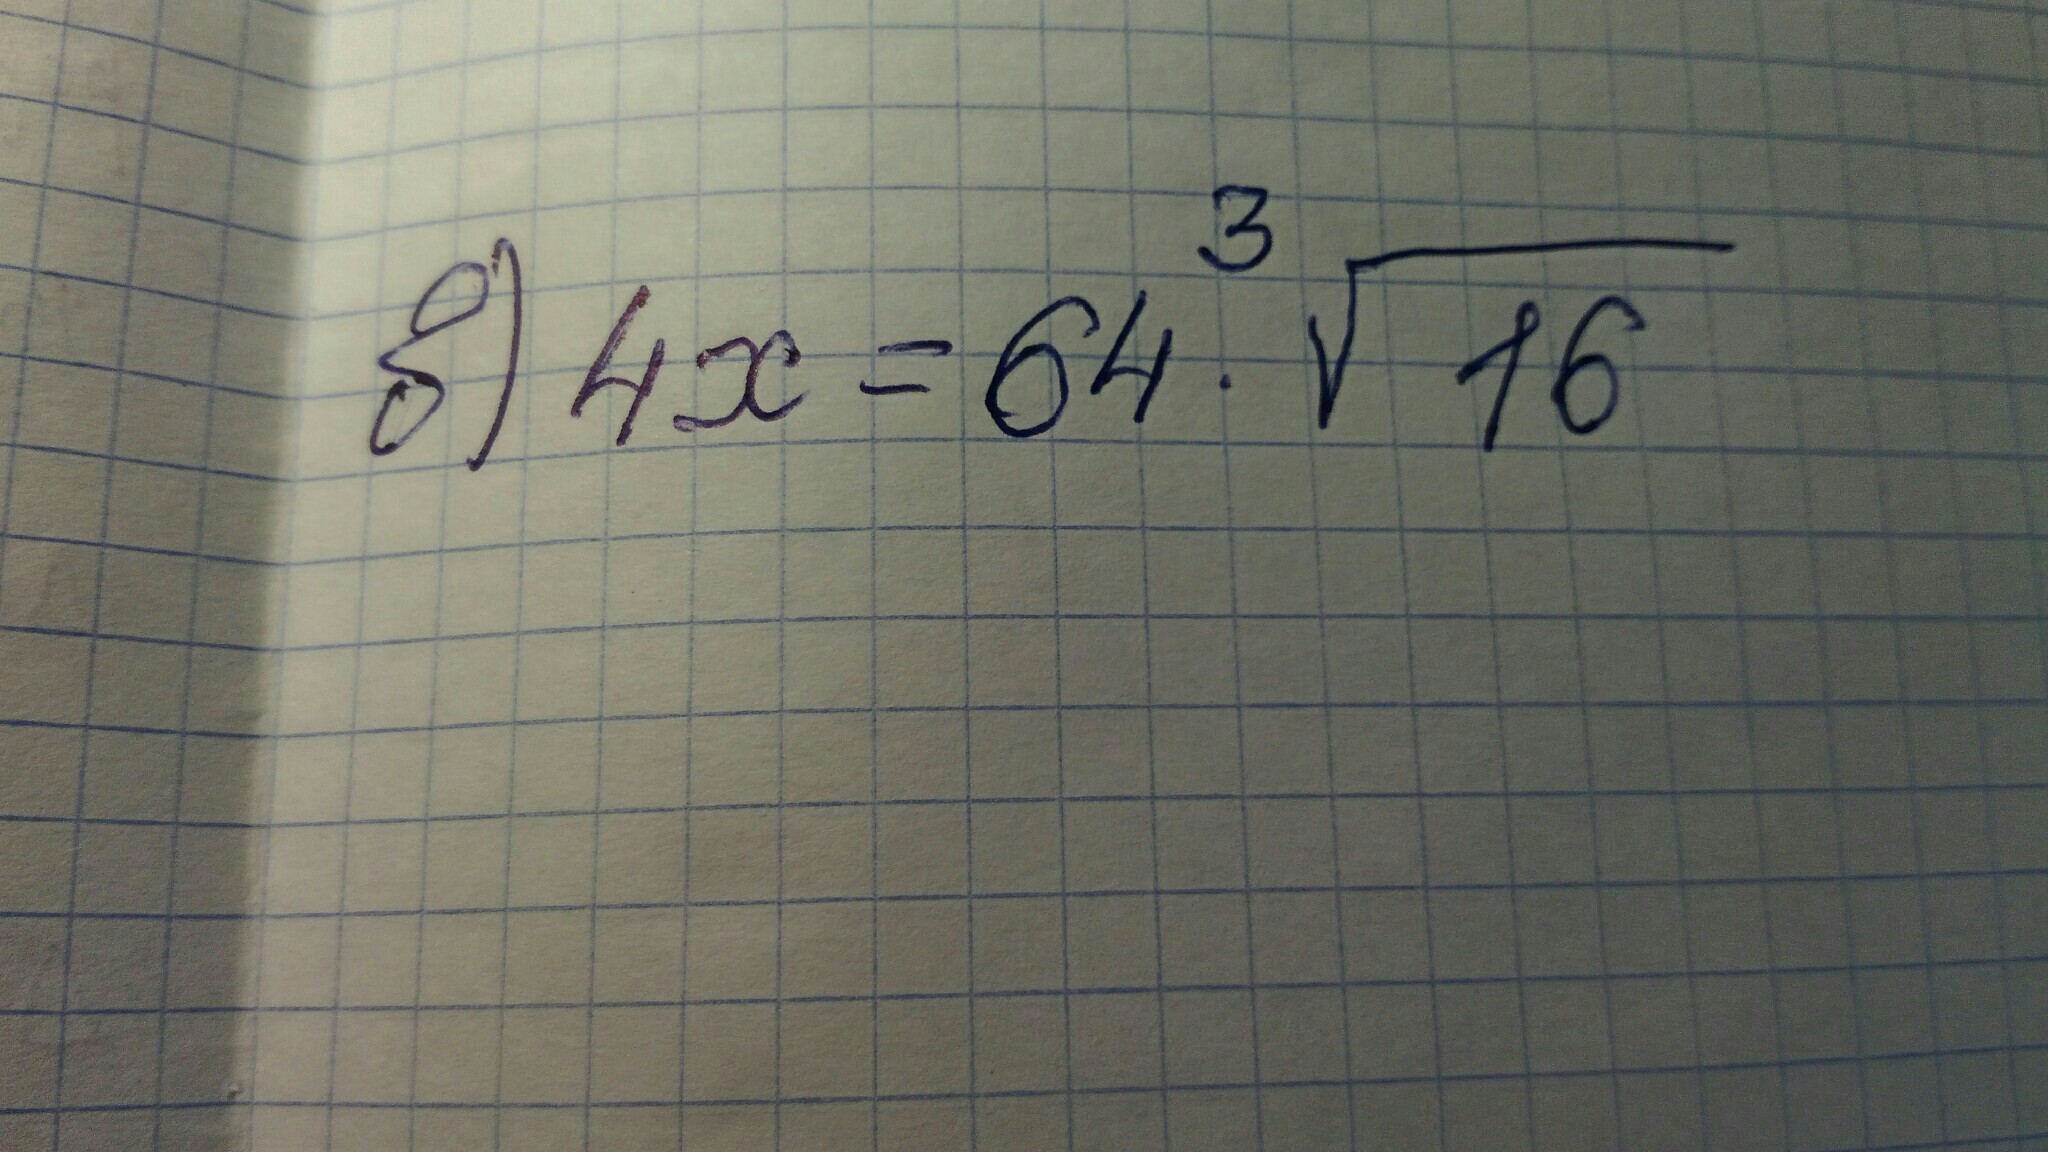 б) 4x = 64 · ³√16